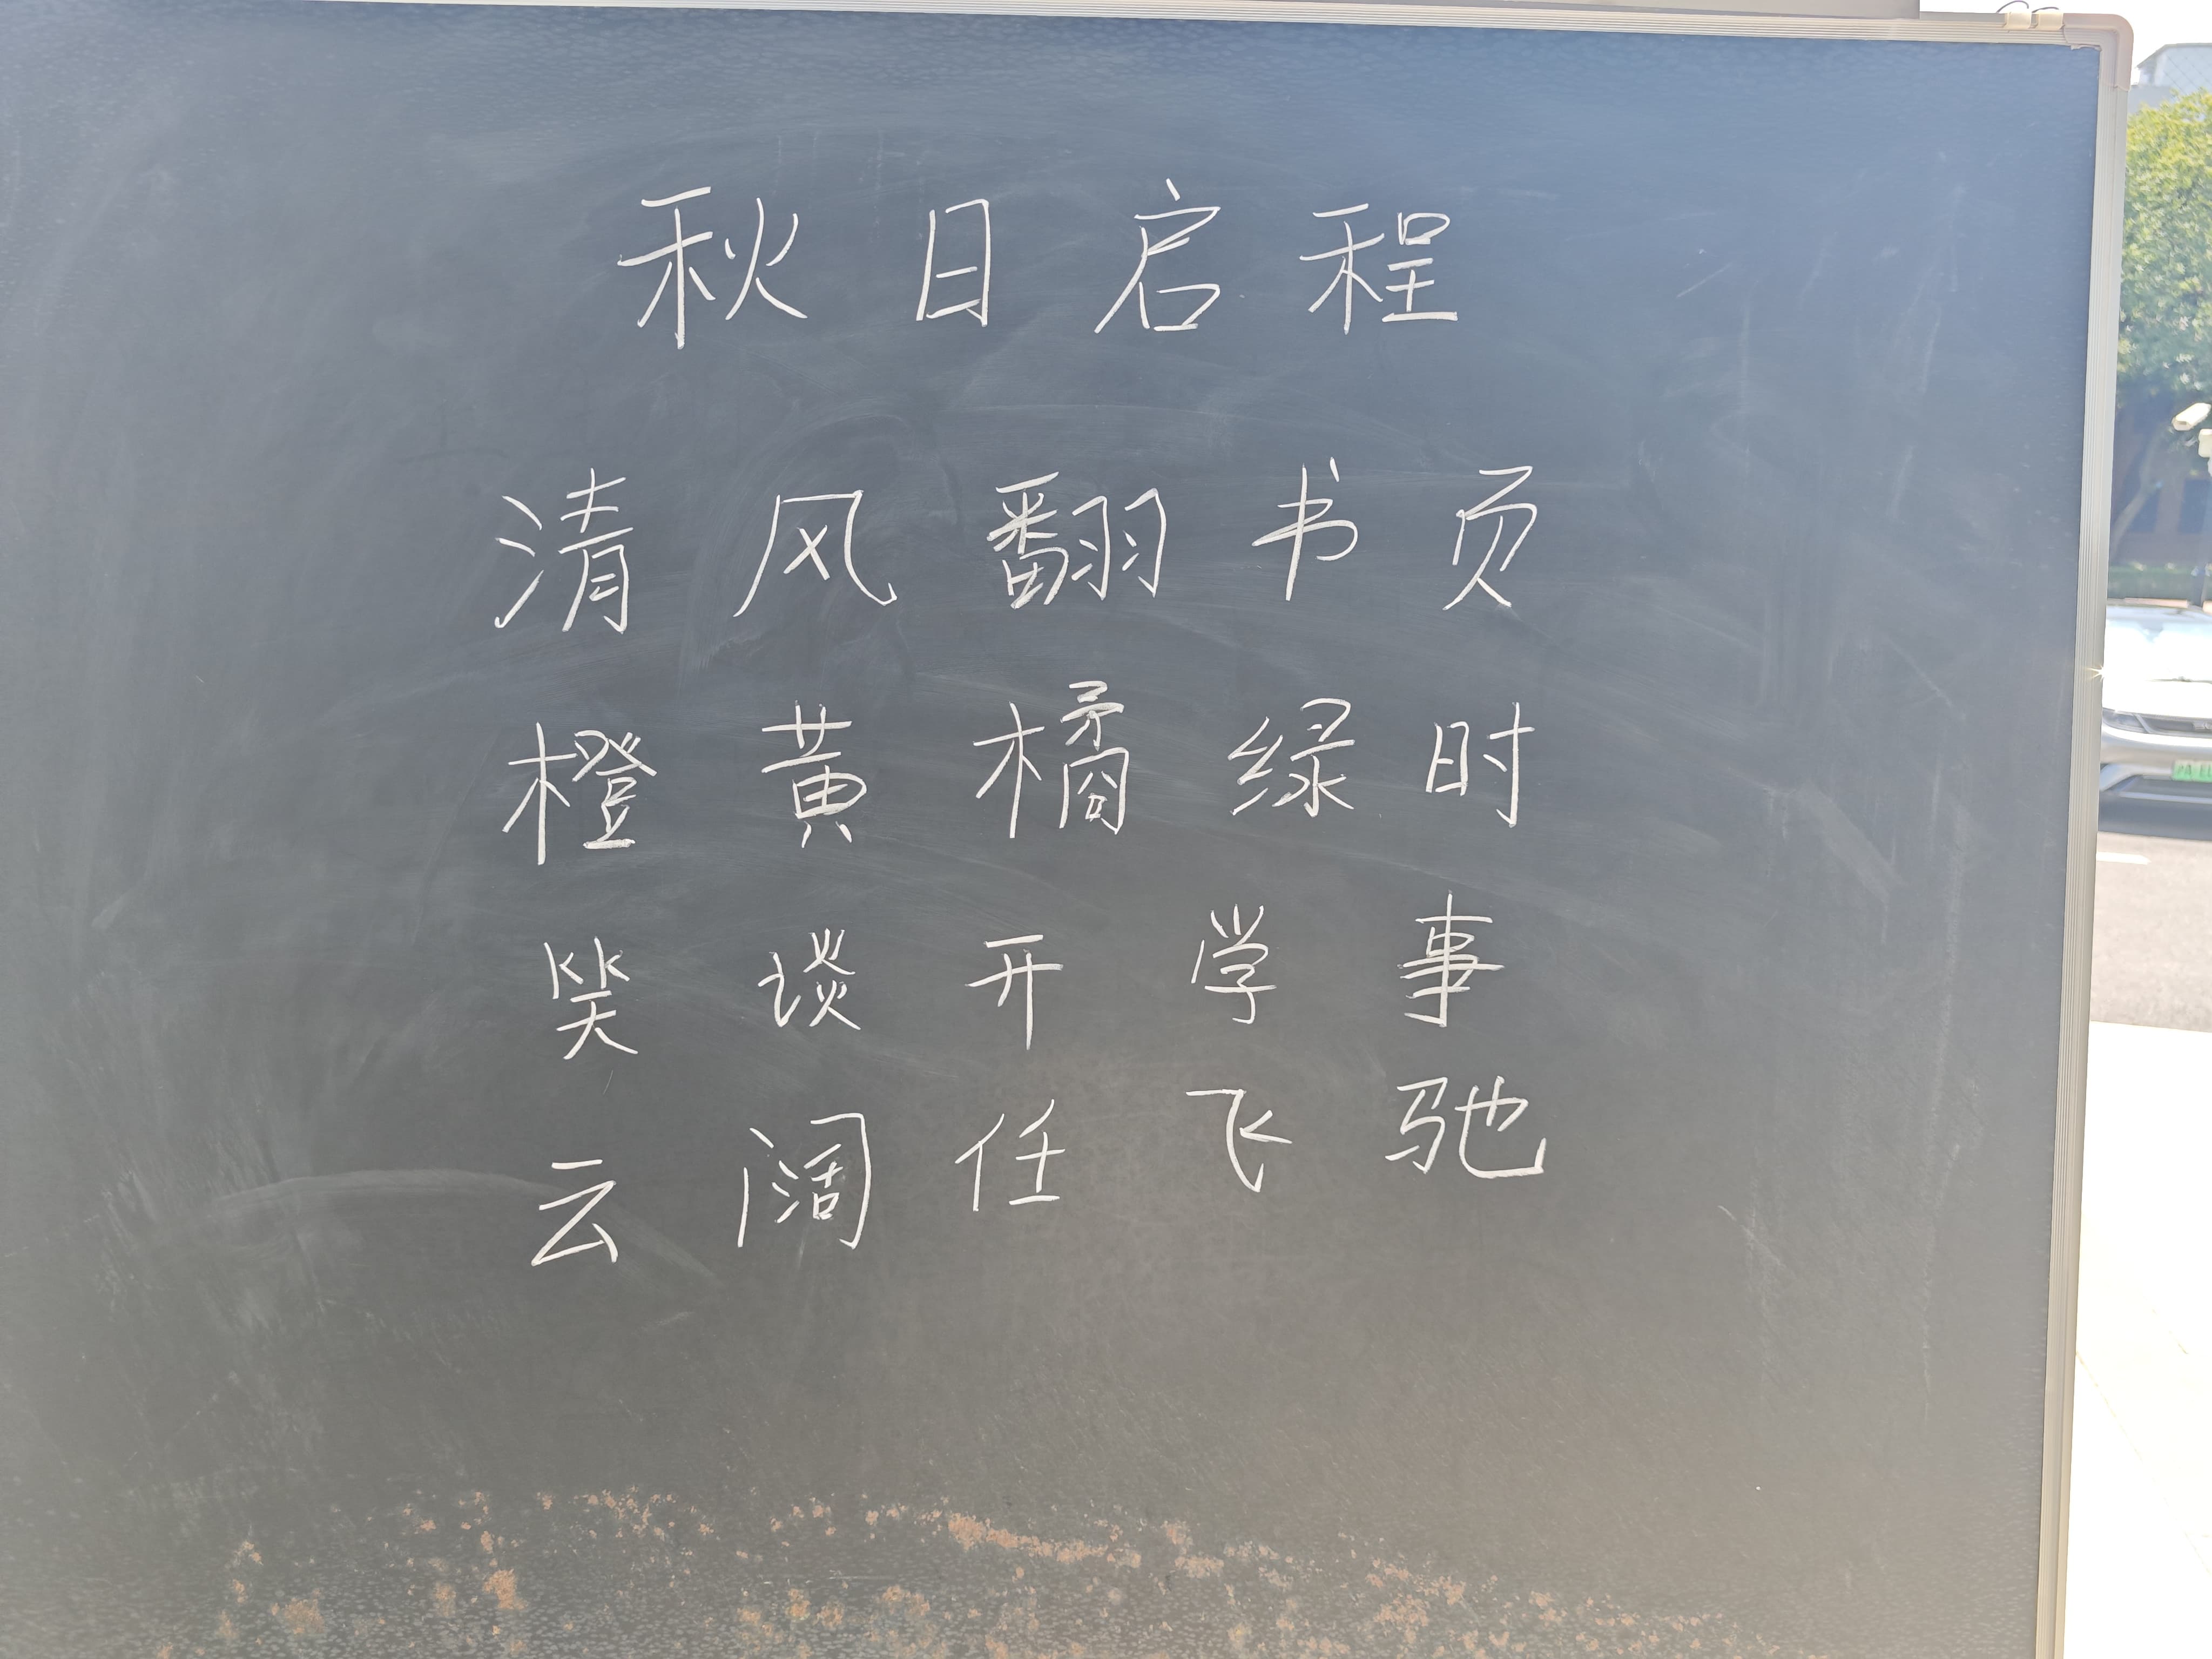 秋日启程
清风翻书页
橙黄橘绿时
笑谈开学事
云阔任飞驰